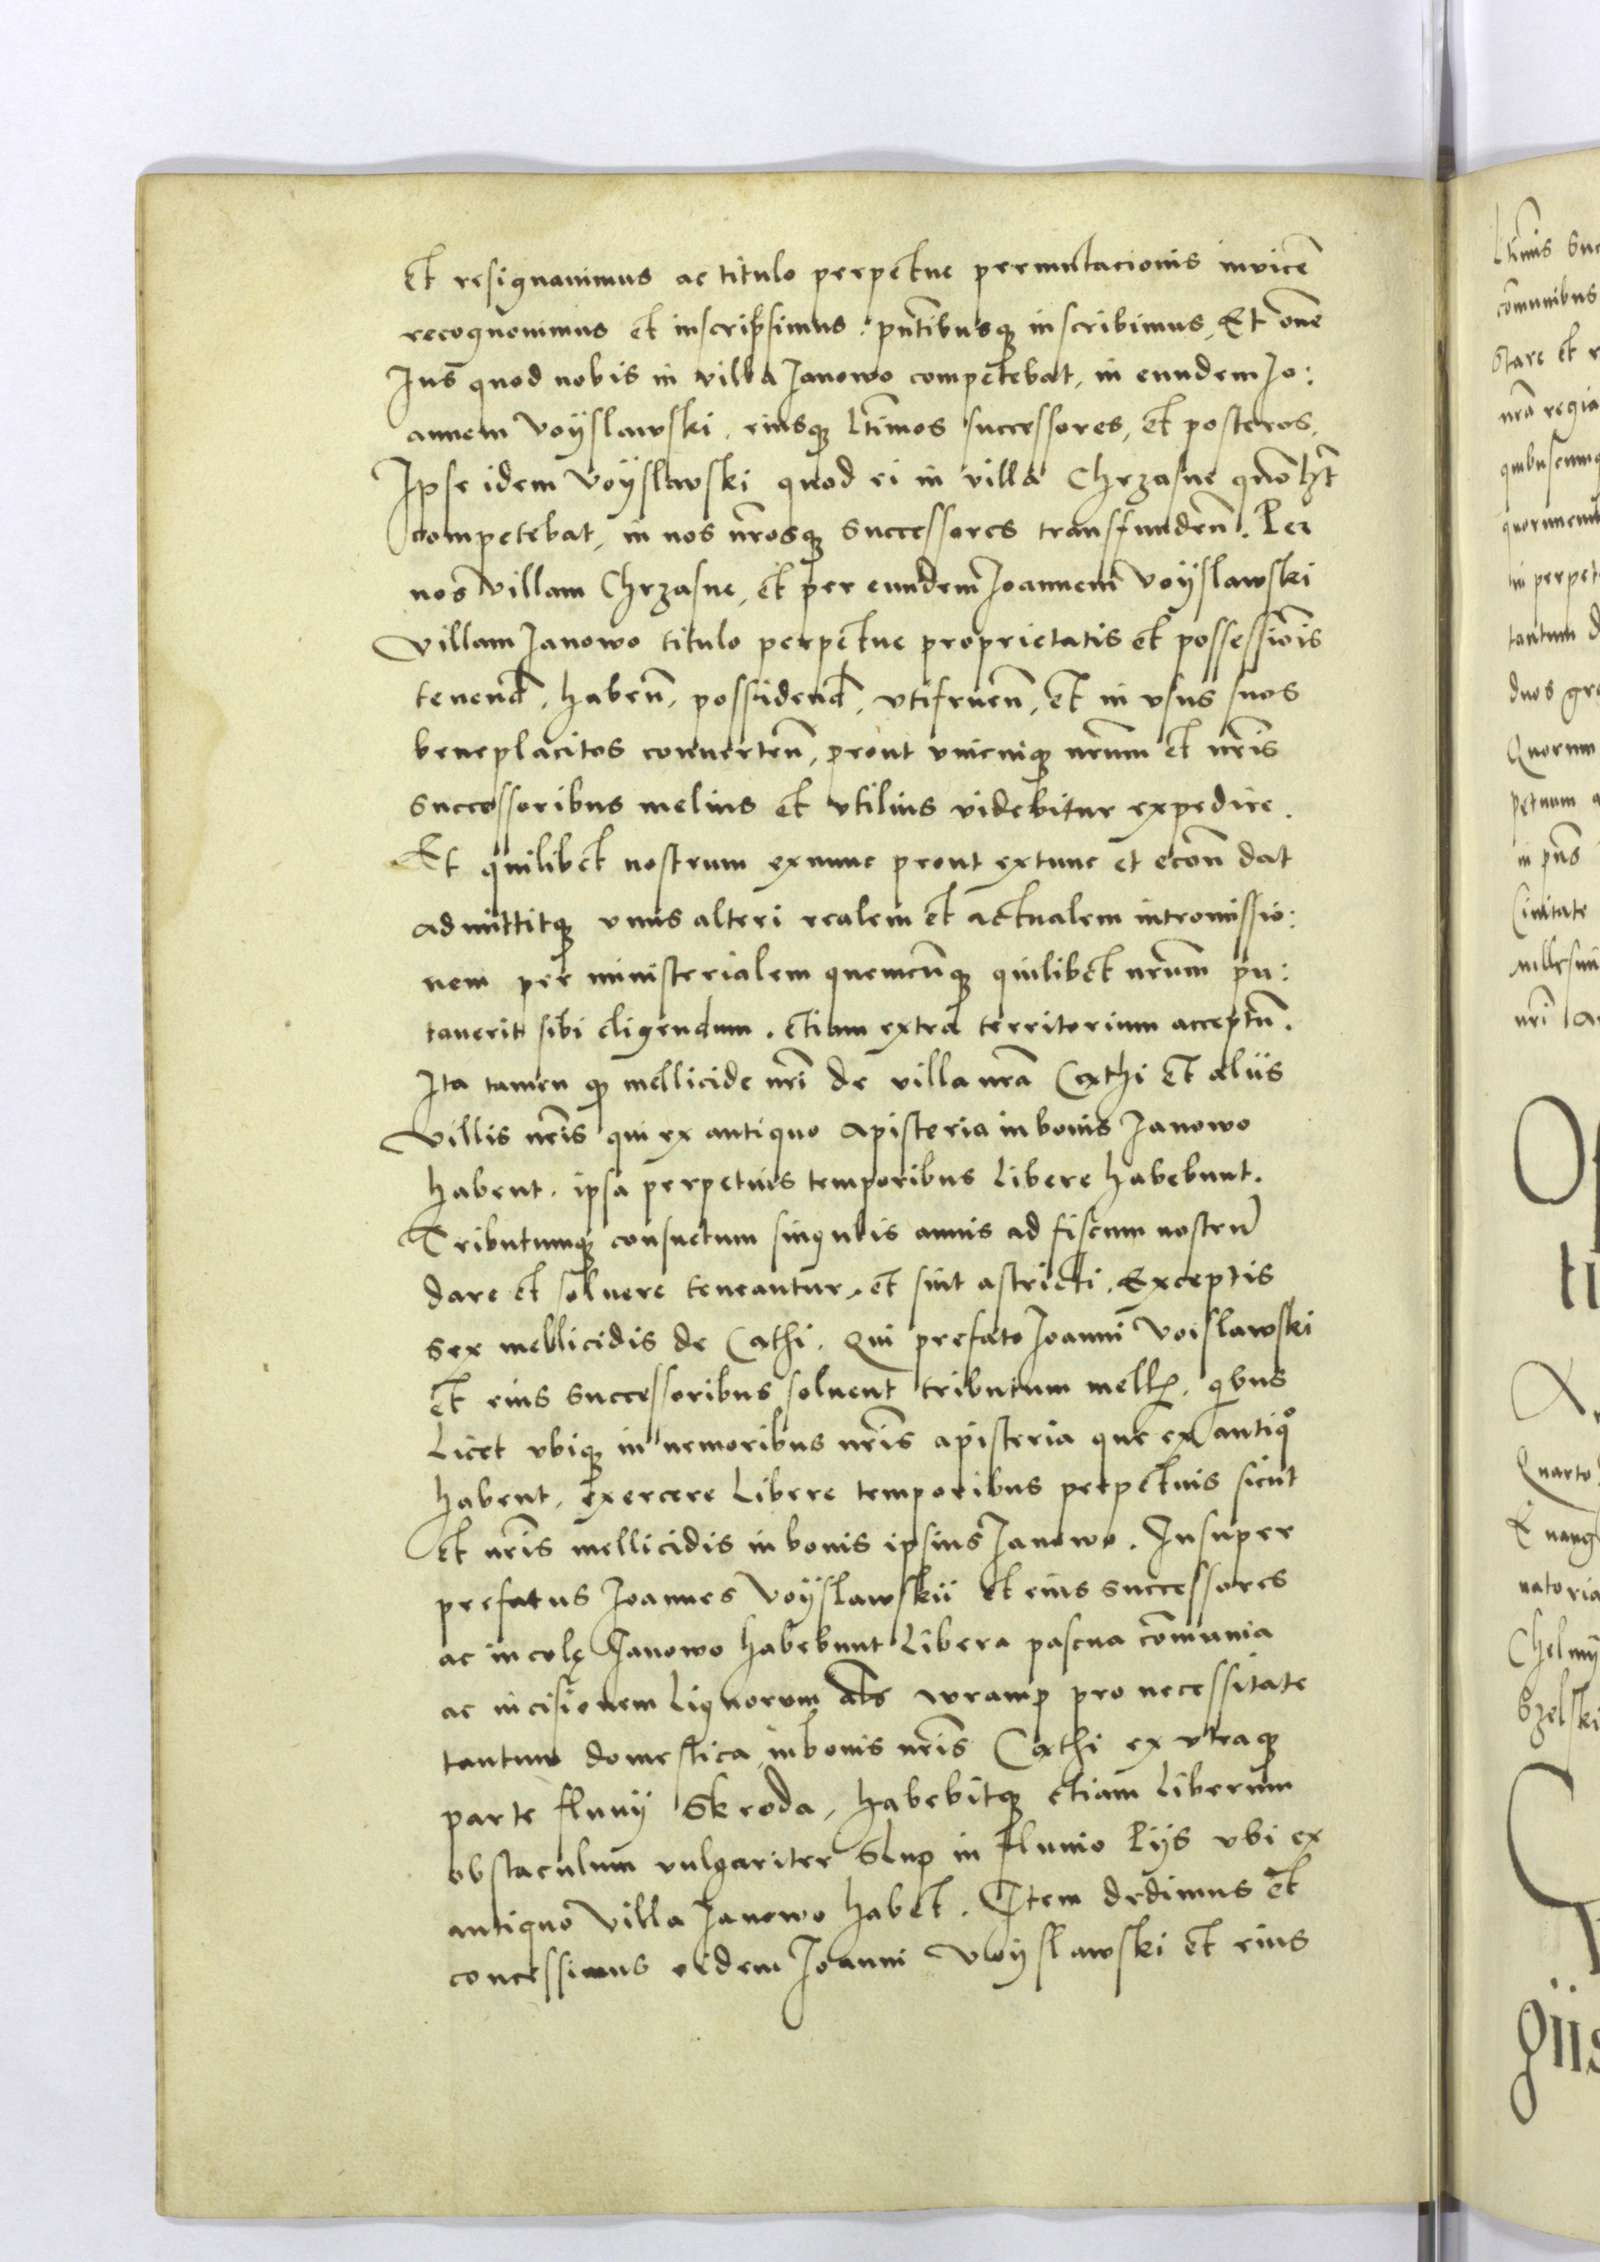 et resignauimus ac titulo perpetue permutacionis inuicē
recognouimus et inscripsimus: pn̄tibusq; inscribimus. Et om̄e
Jus quod nobis in villa Janowo competebat, in eundem Jo:
annem Voyslawski, eiusq; l̄timos successores, et posteros.
Ipse idem Voyslawski quod ei in villa Chrzasne quōl̄t
competebat, in nos n̄rosq; successores transfunden̄. Per
nos villam Chrzasne, et per eundem Joannem Voyslawski
villam Janowo titulo perpetue proprietatis et possessiōis
tenend̄, haben̄, possidend̄, vtifruen̄, et in vsus suos
beneplacitos conuerten̄, prout vnicuiq; n̄rum et n̄ris
successoribus melius et vtilius videbitur expedire.
Et quilibet nostrum exnunc prout extunc et econ̄ dat
admittitq; vnus alteri realem et actualem intromissio:
nem per ministerialem quemcūq; quilibet n̄rum pu:
tauerit sibi eligendum. etiam extra territorium acceptū.
Ita tamen q; mellicide n̄ri de villa n̄ra Cathi et aliis
villis n̄ris qui ex antiquo apisteria in bonis Janowo
habent. ipsa perpetuis temporibus libere habebunt.
Tributumq; consuetum singulis annis ad fiscum nostrū
dare et soluere teneantur, et sint astricti. Exceptis
sex mellicidis de Cathi. Qui prefato Joanni Voislawski
et eius successoribus soluent tributum mell. qibus
licet vbiq; in nemoribus n̄ris apisteria que ex antiqo
habent, exercere libere temporibus perpetuis sicut
et n̄ris mellicidis in bonis ipsius Janowo. Insuper
prefatus Joannes Voyslawskii et eius successores
ac incolę Janowo habebunt libera pascua cōmunia
ac incisionem lignorum als wramp pro necessitate
tantum domestica in bonis n̄ris Cathi ex vtraq;
parte fluuij Skroda, habebitq; etiam liberum
obstaculum vulgariter Slup in fluuio Pijs vbi ex
antiquo villa Janowo habet. Item dedimus et
concessimus eidem Joanni Woyslawski et eius